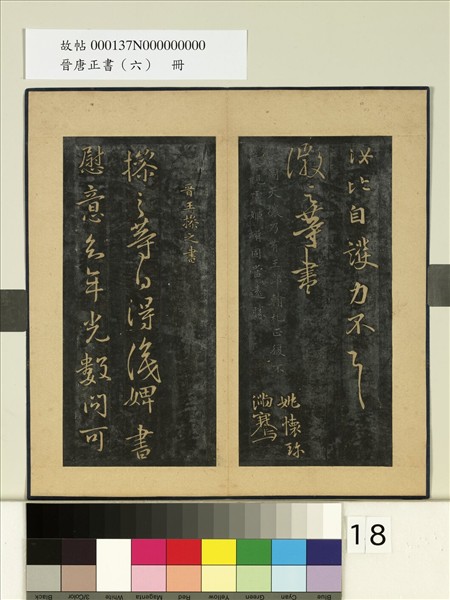 故帖 000137N000000000
晉唐正書（六） 冊
汝比自護力不一一
徽之等書
姚懷珍
滿騫
晉王操之書
操之等白得識婢書
慰意去年光數問可
18
Black
3/Color
White
Magenta
Red
Yellow
Green
Cyan
Blue